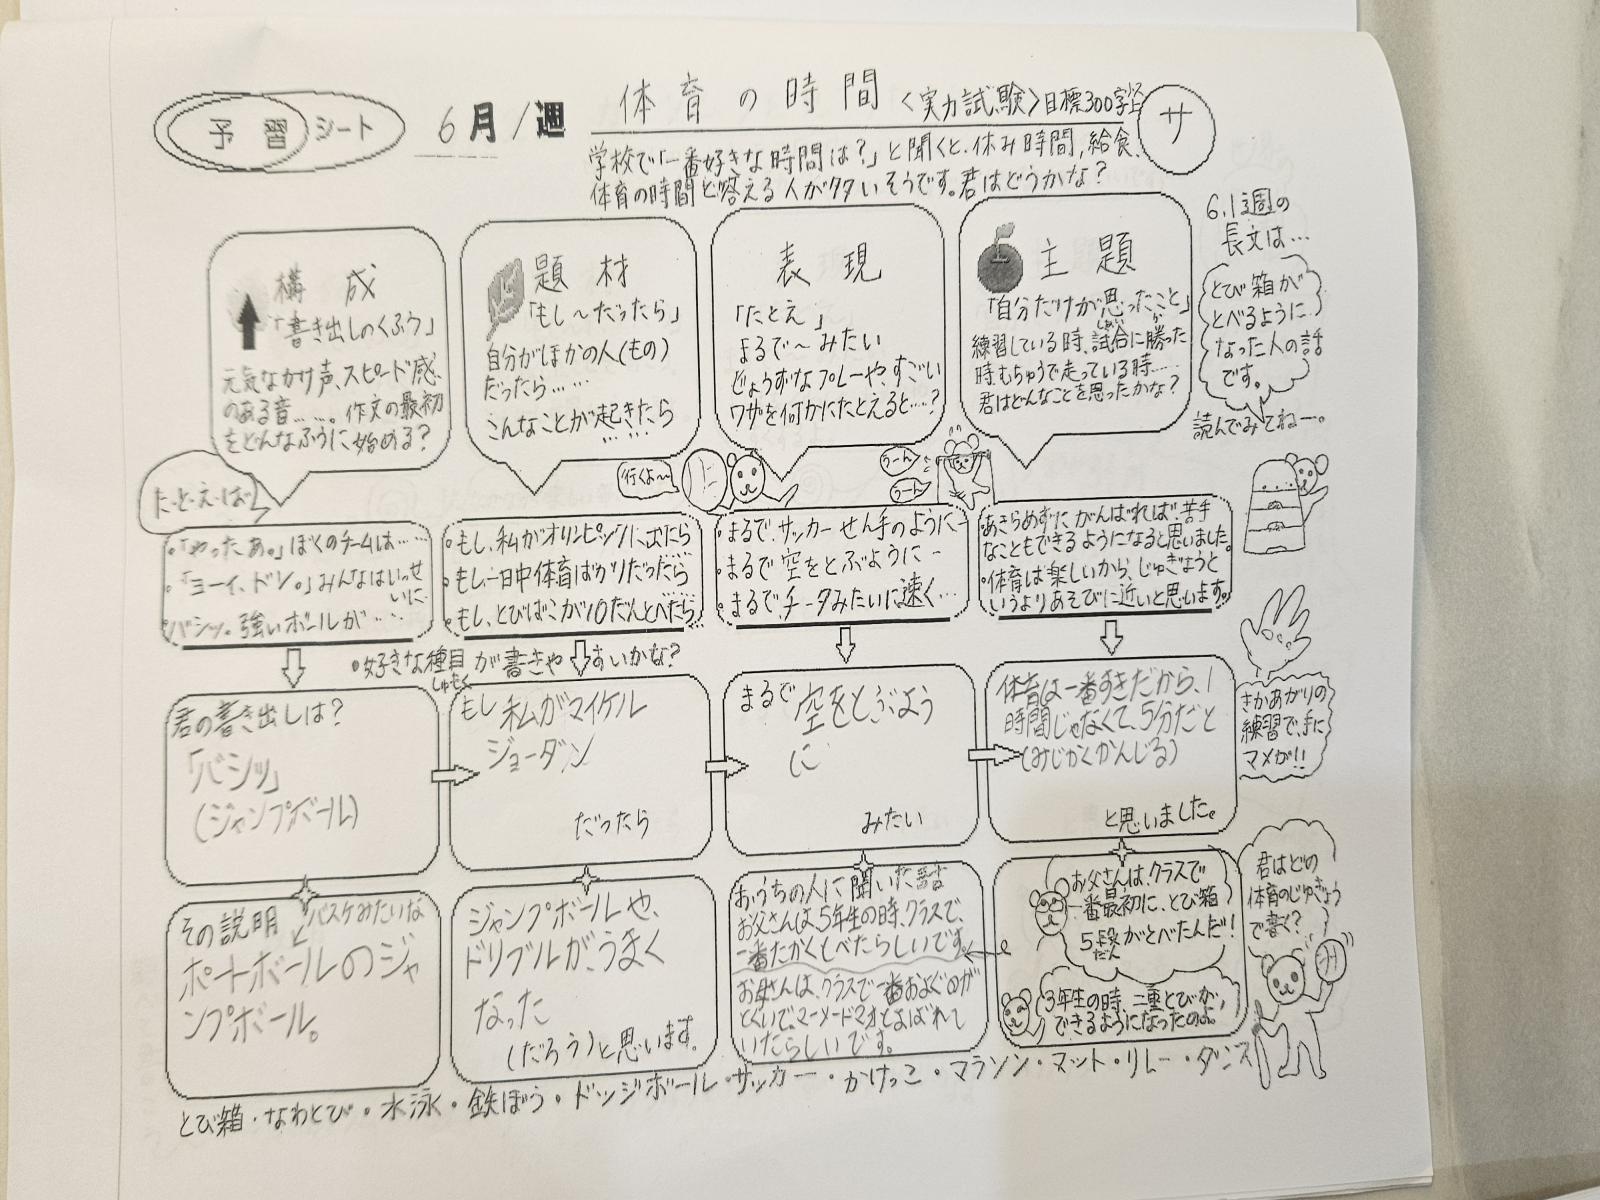 予習シート
6月1週
体育の時間
<実力試験>目標300字
サ
学校で「一番好きな時間は?」と聞くと、休み時間、給食、
体育の時間と答える人が多いそうです。君はどうかな?
構成
「書き出しのくふう」
元気なかけ声、スピード感
のある音……。作文の最初
をどんなふうに始める?
題材
「もし〜だったら」
自分がほかの人(もの)
だったら……
こんなことが起きたら
……
表現
「たとえ」
まるで〜みたい
じょうずなプレーや、すごい
ワザを何かにたとえると…?
主題
「自分だけが思ったこと」
練習している時、試合に勝った
しあい
か
時、むちゅうで走っている時……
君はどんなことを思ったかな?
6.1週の
長文は…
とび箱が
とべるように
なった人の話
です。
読んでみてねー。
た・と・え・ば
・「やったあ。」ぼくのチームは……
・「ヨーイ、ドン。」みんなはいっせ
いに…
・バシッ。強いボールが……
行くよ〜
・もし、私がオリンピックに出たら
・もし一日中体育ばかりだったら
・もし、とびばこが10だんとべたら…
・まるで、サッカーせん手のように
・まるで空をとぶように
・まるで、チータみたいに速く…
うーん
うーん
・あきらめずにがんばれば苦手
なこともできるようになると思いました。
・体育は楽しいから、じゅぎょうと
いうよりあそびに近いと思います。
・好きな種目が書きやすいかな?
しゅもく
君の書き出しは?
「バシッ」
(ジャンプボール)
もし 私がマイケル
ジョーダン
だったら
まるで 空をとぶよう
に
みたい
体育は一番すきだから、1
時間じゃなくて、5分だと
(みじかくかんじる)
と思いました。
さかあがりの
練習で、手に
マメが!!
その説明
バスケみたいな
ポートボールのジャ
ンプボール。
ジャンプボールや、
ドリブルが、うまく
なった
(だろう)と思います。
おうちの人に聞いた話
お父さんは、5年生の時、クラスで、
一番たかくとべたらしいです。
お母さんは、クラスで一番およぐのが
とくいで、マーメードマオとよばれて
いたらしいです。
お父さんは、クラスで
一番最初に、とび箱
5段がとべたんだ!
だん
3年生の時、二重とびが、
できるようになったのよ。
君はどの
体育のじゅぎょう
で書く?
とび箱・なわとび・水泳・鉄ぼう・ドッジボール・サッカー・かけっこ・マラソン・マット・リレー・ダンス